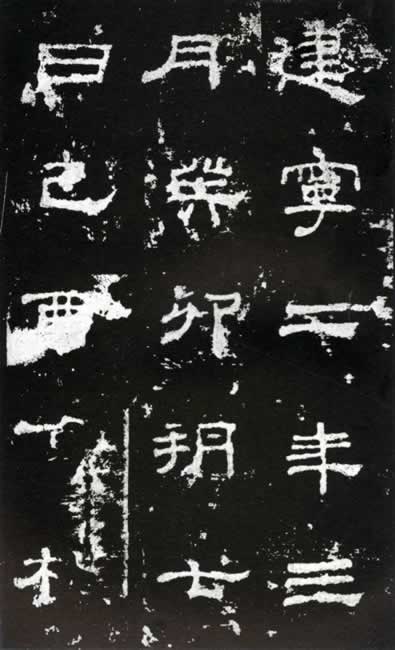 建寧二年三
月癸卯朔七
日己酉